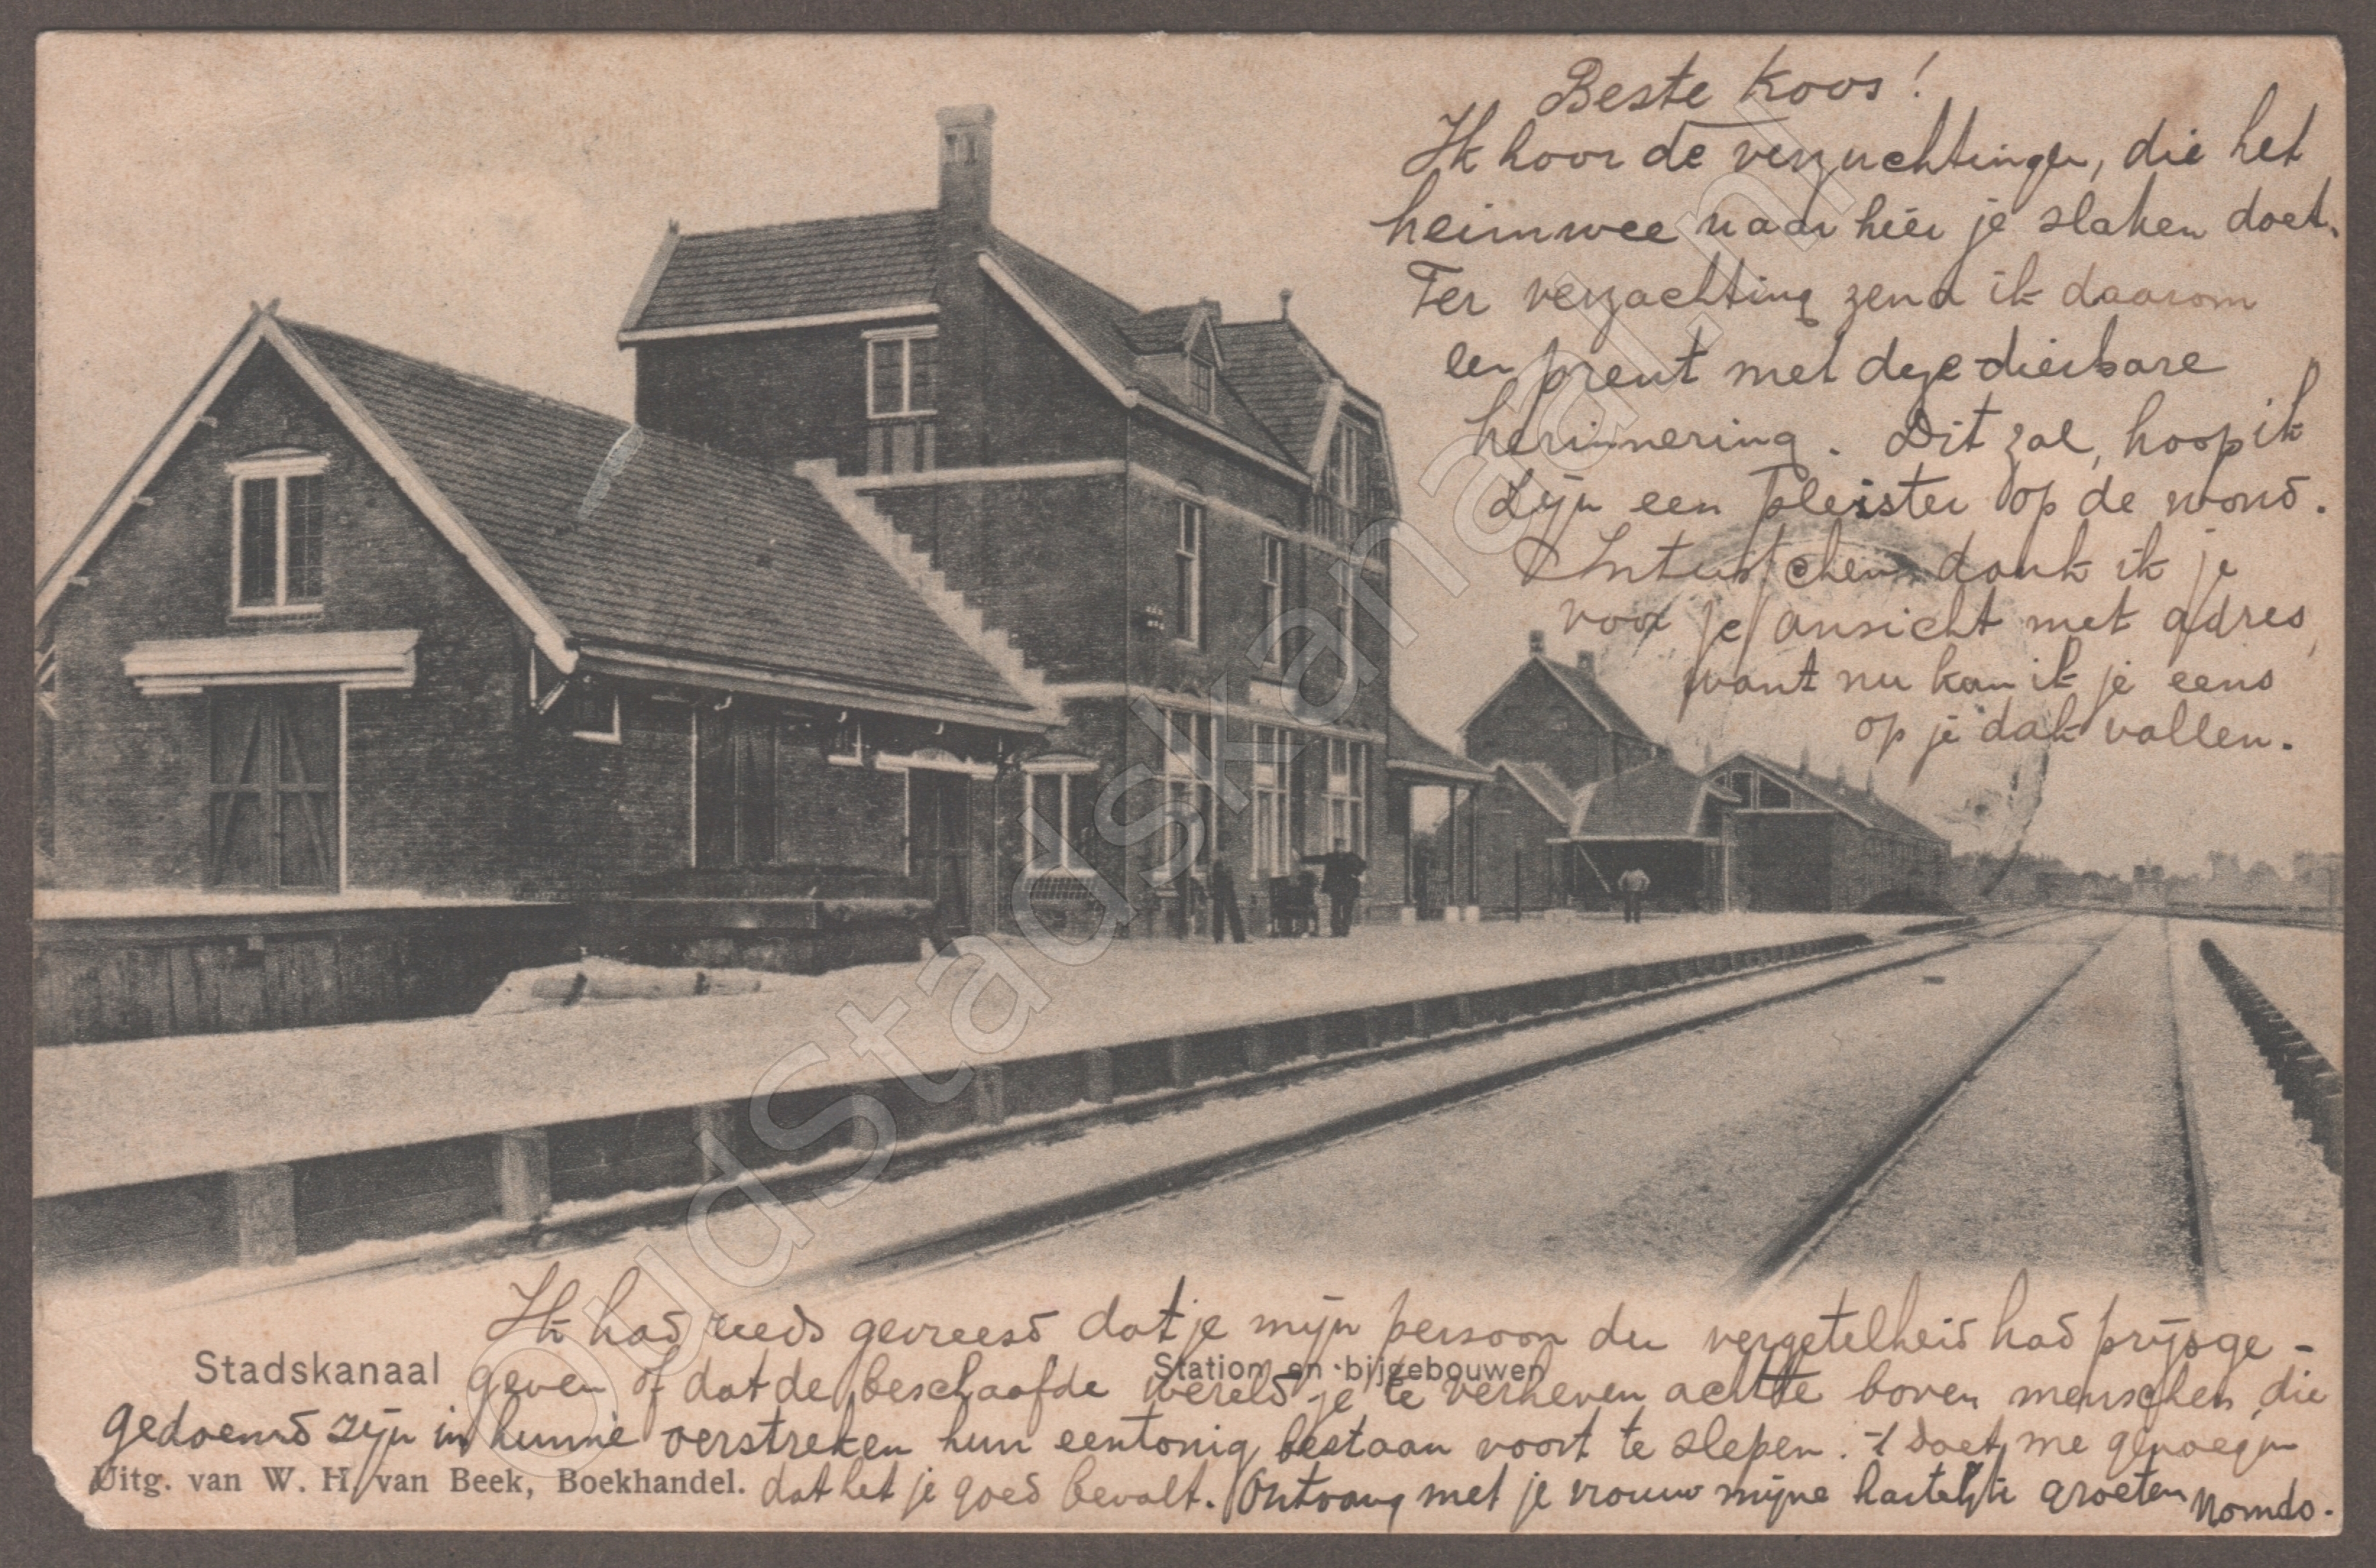 Beste Koos!
Ik hoor de verzuchtingen, die het
heimwee naar hier je slaken doet.
Ter verzachting zend ik daarom
een prent met deze dierbare
herinnering. Dit zal, hoop ik
zijn een pleister op de wond.
Intusschen dank ik je
voor je ansicht met adres,
want nu kan ik je eens
op je dak vallen.
Ik had reeds gevreesd dat je mijn persoon der vergetelheid had prijsge-
geven of dat de beschaafde wereld je te verheven achtte boven menschen, die
gedoemd zijn in hunne oerstreken hun eentonig bestaan voort te slepen. 't doet me genoegen
dat het je goed bevalt. Ontvang met je vrouw mijne hartelijke groeten Nomdo.
Stadskanaal
Station en bijgebouwen
Uitg. van W. H. van Beek, Boekhandel.
OudStadskanaal.nl